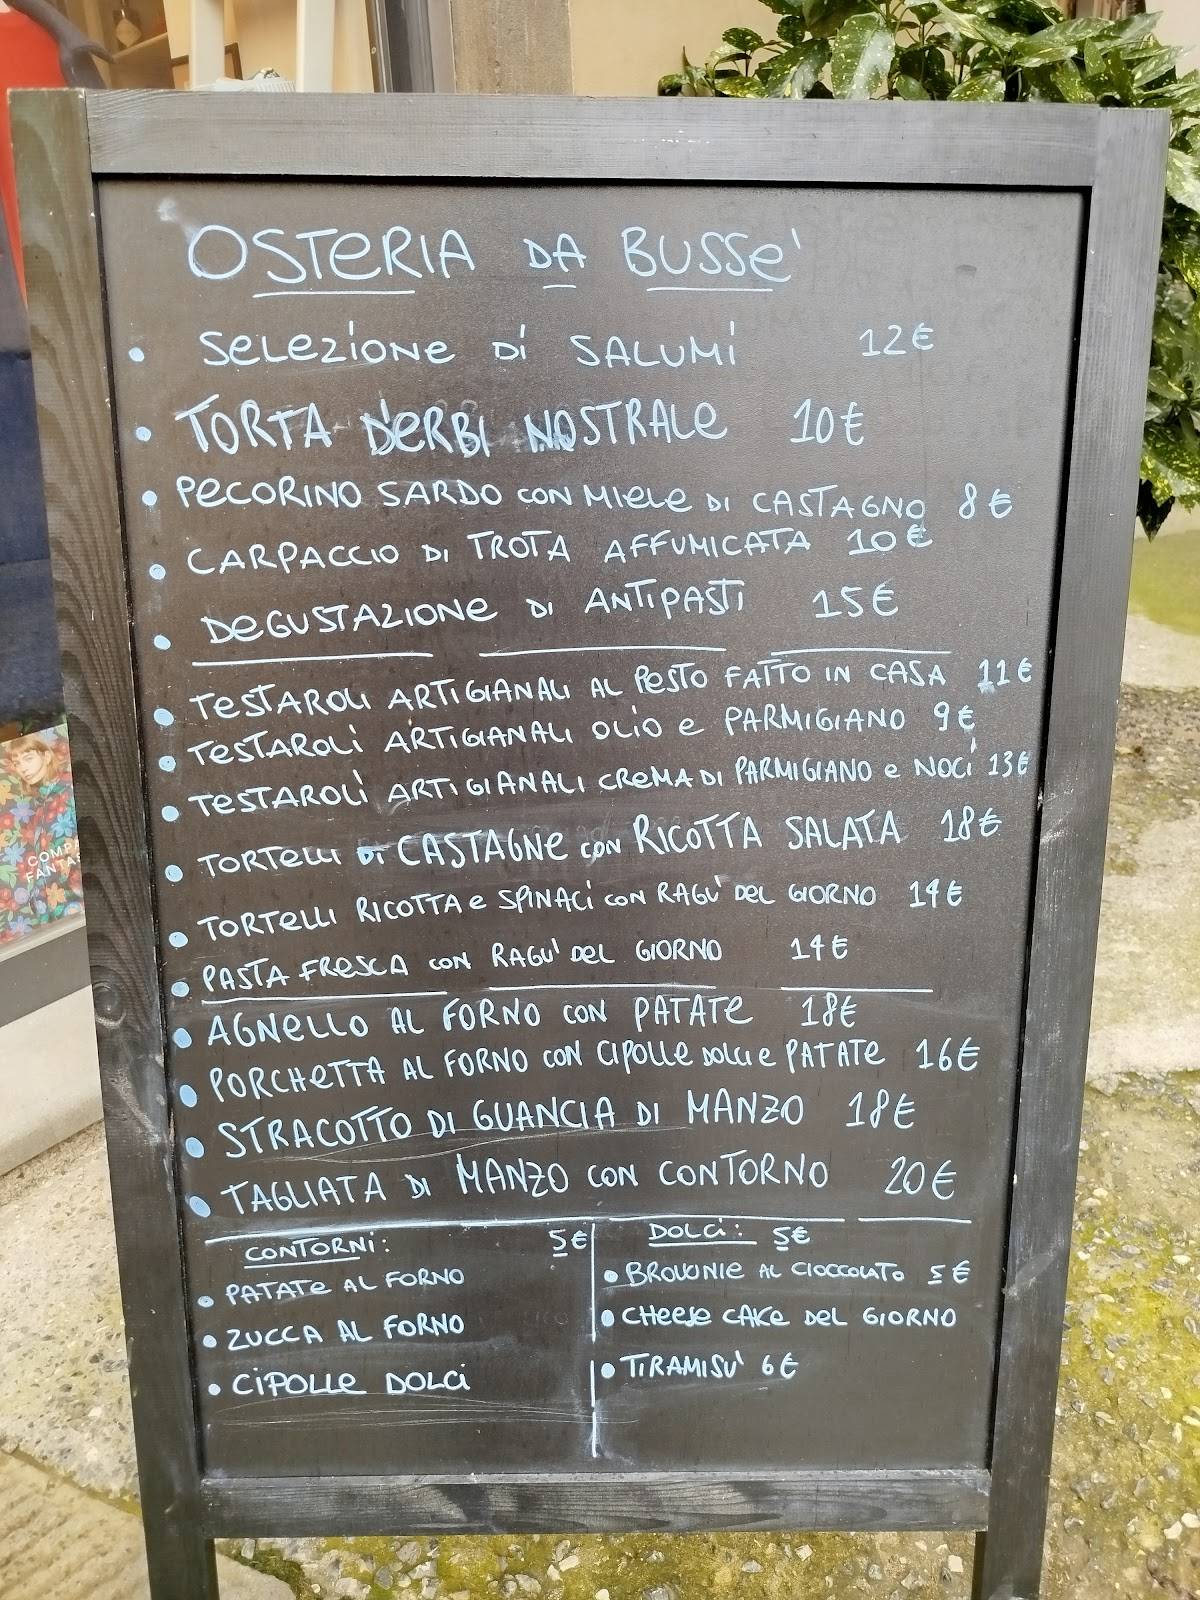 OSTERIA DA BUSSE'
• SELEZIONE DI SALUMI 12€
• TORTA D'ERBI NOSTRALE 10€
• PECORINO SARDO CON MIELE DI CASTAGNO 8€
• CARPACCIO DI TROTA AFFUMICATA 10€
• DEGUSTAZIONE DI ANTIPASTI 15€
• TESTAROLI ARTIGIANALI AL PESTO FATTO IN CASA 11€
• TESTAROLI ARTIGIANALI OLIO E PARMIGIANO 9€
• TESTAROLI ARTIGIANALI CREMA DI PARMIGIANO E NOCI 13€
• TORTELLI DI CASTAGNE CON RICOTTA SALATA 18€
• TORTELLI RICOTTA E SPINACI CON RAGU' DEL GIORNO 14€
• PASTA FRESCA CON RAGU' DEL GIORNO 14€
• AGNELLO AL FORNO CON PATATE 18€
• PORCHETTA AL FORNO CON CIPOLLE DOLCI E PATATE 16€
• STRACOTTO DI GUANCIA DI MANZO 18€
• TAGLIATA DI MANZO CON CONTORNO 20€
CONTORNI: 5€
• PATATE AL FORNO
• ZUCCA AL FORNO
• CIPOLLE DOLCI
DOLCI: 5€
• BROUONIE AL CIOCCOLATO 5€
• CHEESE CAKE DEL GIORNO
• TIRAMISU' 6€